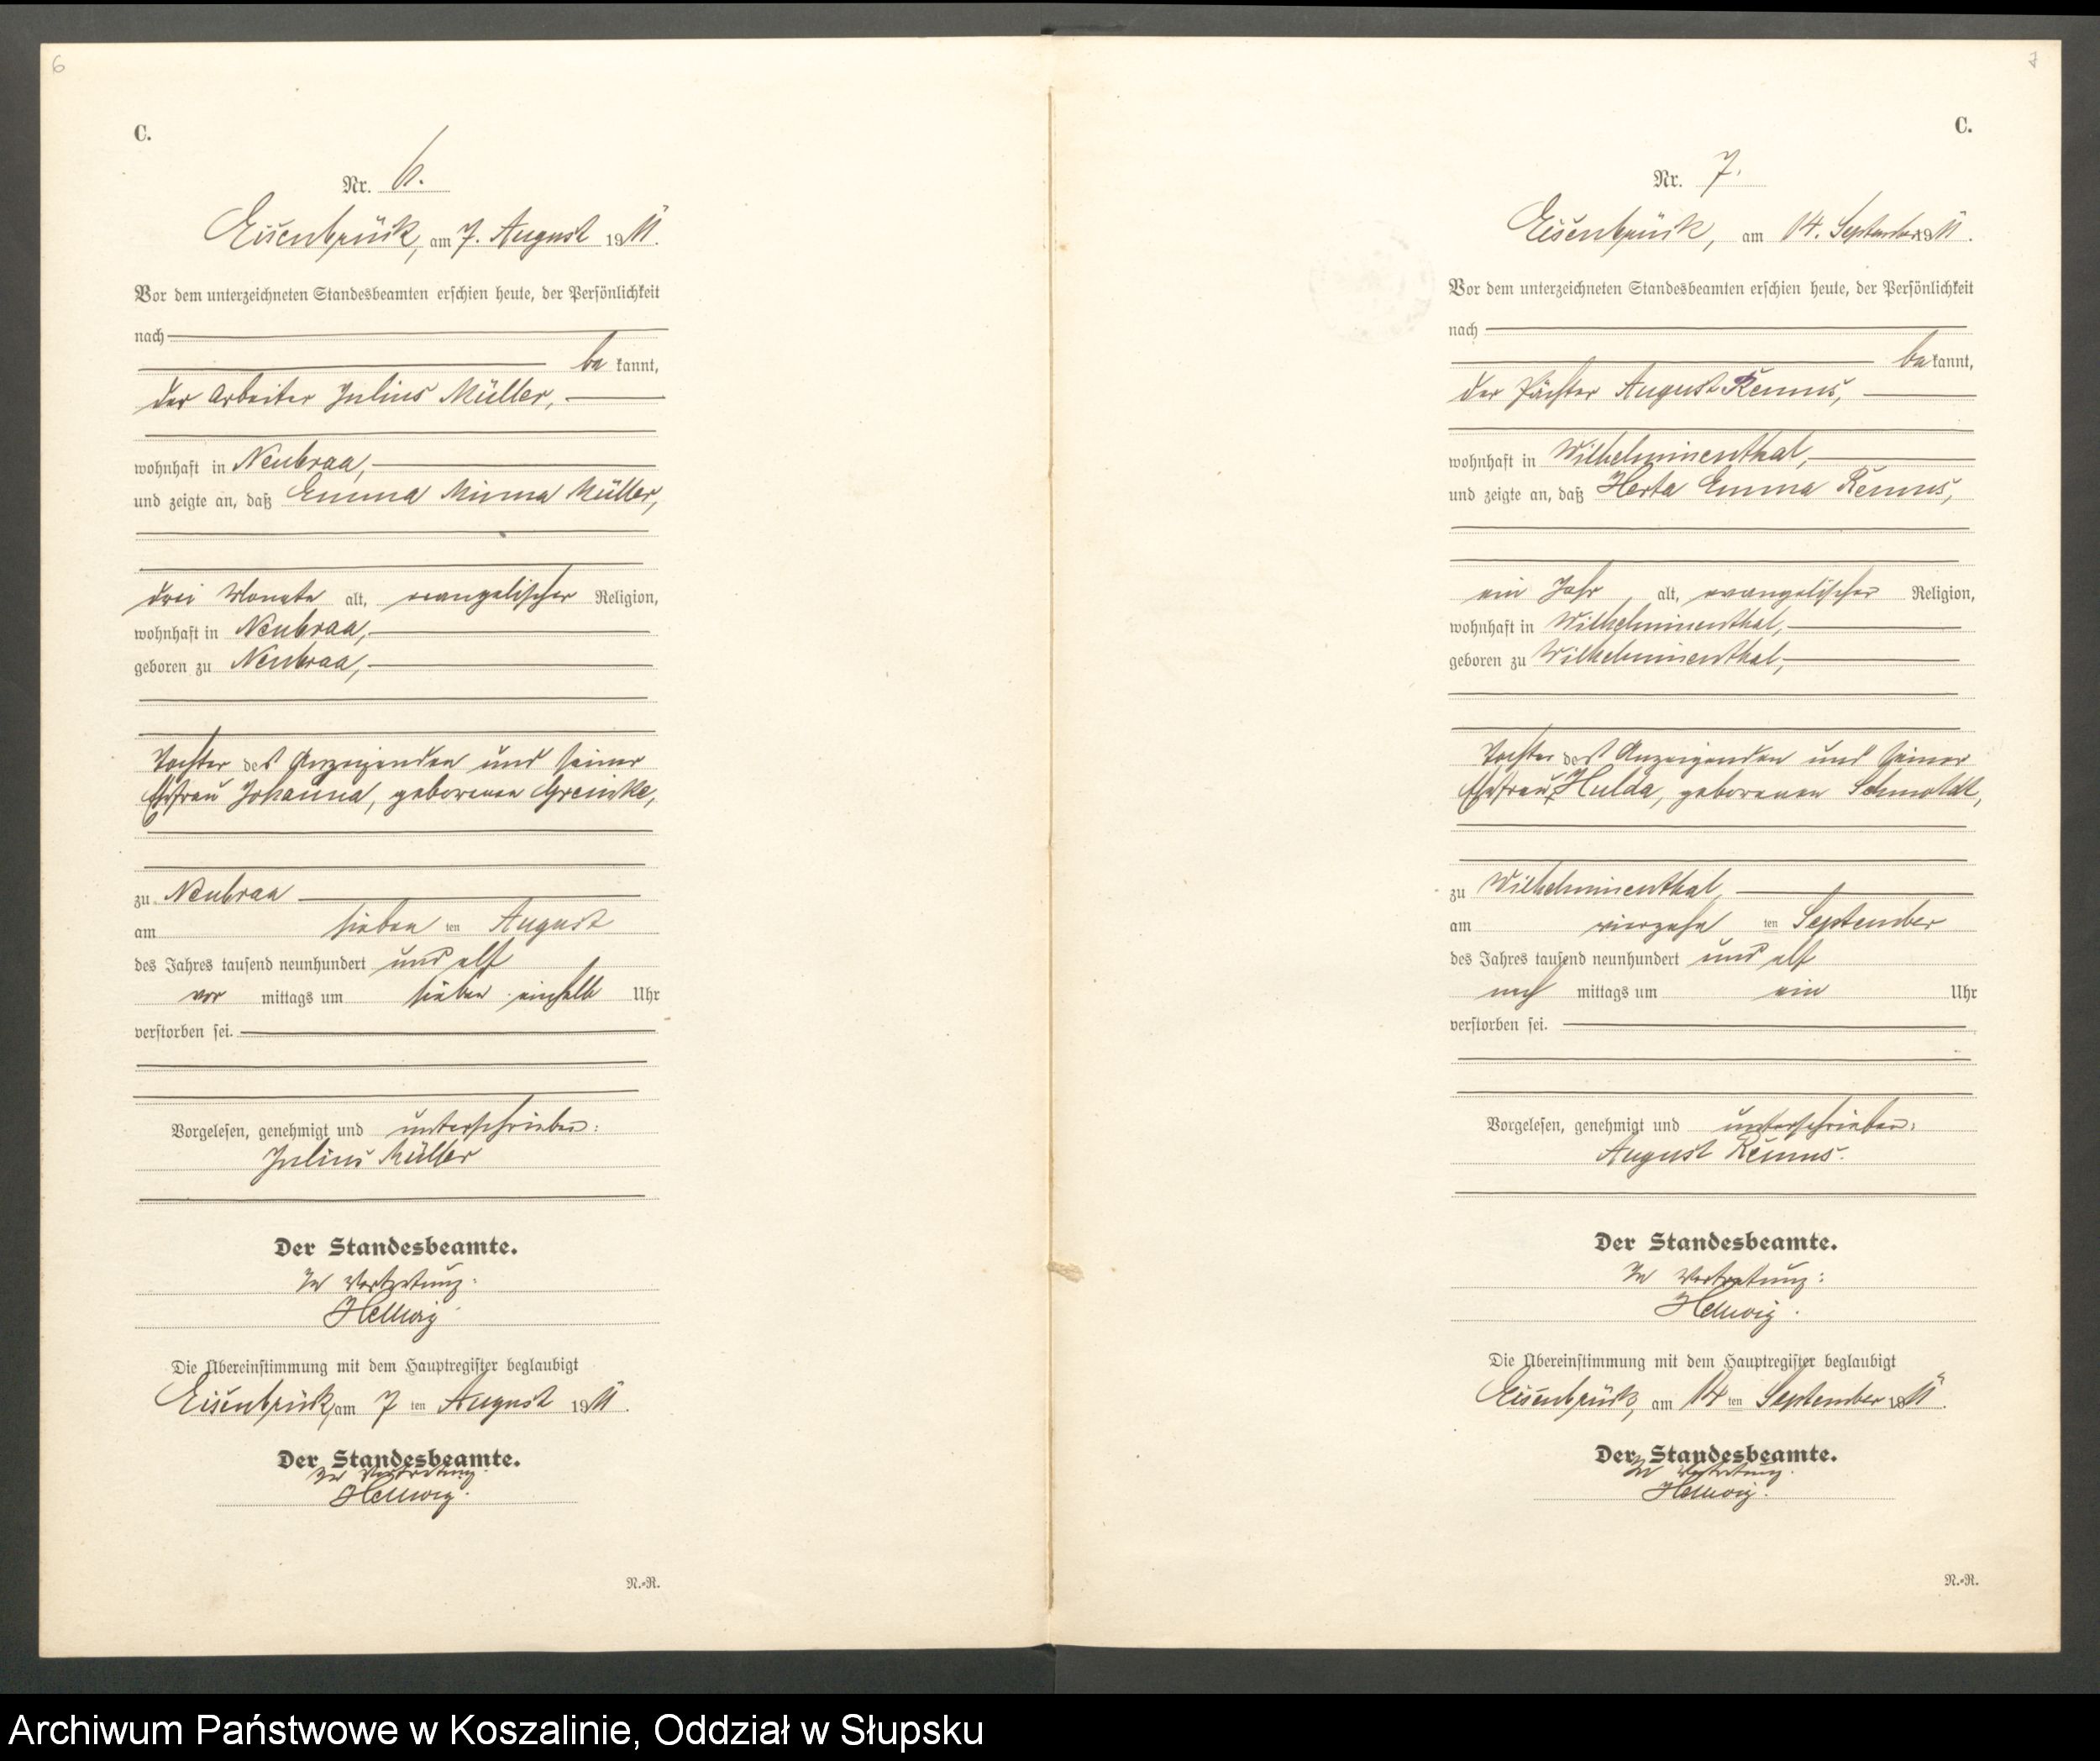 6
C.
Nr. 6.
Eisenbrück, am 7. August 1911.
Vor dem unterzeichneten Standesbeamten erschien heute, der Persönlichkeit
nach
be kannt,
der Arbeiter Julius Müller,
wohnhaft in Neubraa,
und zeigte an, daß Emma Minna Müller,
drei Monate alt, evangelischer Religion,
wohnhaft in Neubraa,
geboren zu Neubraa,
Tochter des Anzeigenden und seiner
Ehefrau Johanna, geborenen Greinke,
zu Neubraa
am sieben ten August
des Jahres tausend neunhundert und elf
vor mittags um sieben einhalb Uhr
verstorben sei.
Vorgelesen, genehmigt und unterschrieben:
Julius Müller
Der Standesbeamte.
In Vertretung:
Hellwig
Die Übereinstimmung mit dem Hauptregister beglaubigt
Eisenbrück, am 7 ten August 1911.
Der Standesbeamte.
In Vertretung:
Hellwig.
N.-R.
7
C.
Nr. 7.
Eisenbrück, am 14. September 1911.
Vor dem unterzeichneten Standesbeamten erschien heute, der Persönlichkeit
nach
be kannt,
der Pächter August Remus,
wohnhaft in Wilhelminenthal,
und zeigte an, daß Herta Emma Remus,
ein Jahr, alt, evangelischer Religion,
wohnhaft in Wilhelminenthal,
geboren zu Wilhelminenthal,
Tochter des Anzeigenden und seiner
Ehefrau, Hulda, geborenen Schmoldt,
zu Wilhelminenthal,
am vierzehn ten September
des Jahres tausend neunhundert und elf
nach mittags um ein Uhr
verstorben sei.
Vorgelesen, genehmigt und unterschrieben:
August Remus.
Der Standesbeamte.
In Vertretung:
Hellwig.
Die Übereinstimmung mit dem Hauptregister beglaubigt
Eisenbrück, am 14 ten September 1911.
Der Standesbeamte.
In Vertretung.
Hellwig.
N.-R.
Archiwum Państwowe w Koszalinie, Oddział w Słupsku